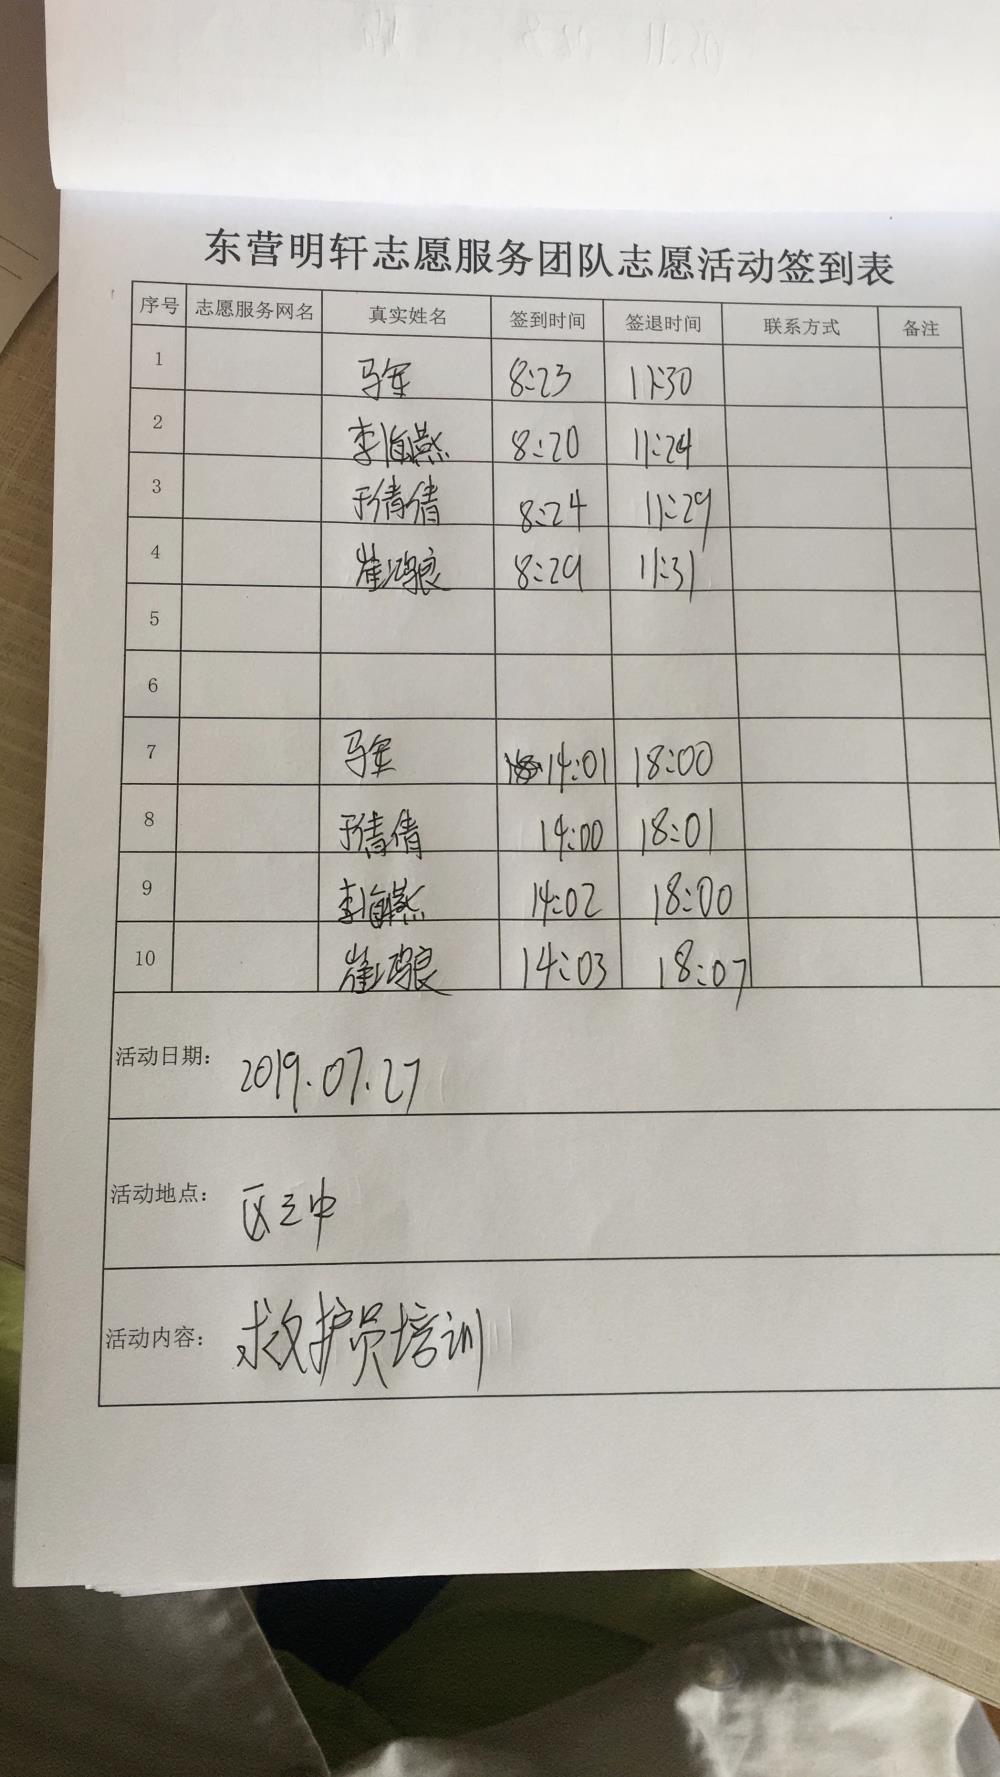 东营明轩志愿服务团队志愿活动签到表
序号 志愿服务网名 真实姓名 签到时间 签退时间 联系方式 备注
1 马军 8:23 11:30
2 李海燕 8:20 11:24
3 于倩倩 8:24 11:29
4 崔鸿 8:29 11:31
5
6
7 马军 14:01 18:00
8 于倩倩 14:00 18:01
9 李海燕 14:02 18:00
10 崔鸿 14:03 18:07
活动日期: 2019.07.27
活动地点: 区三中
活动内容: 救护员培训